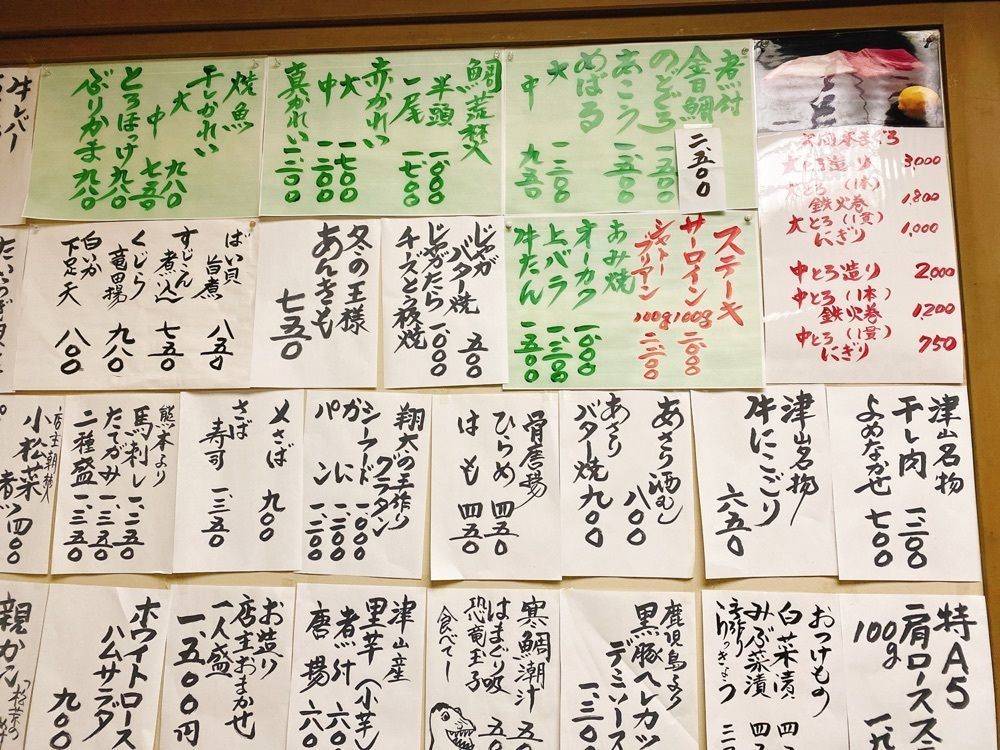 煮付
金目鯛 二、五〇〇
のどぐろ 一、五〇〇
あこう 一、五〇〇
めばる
大 一、三〇〇
中 九五〇
鯛荒焚
半頭 一、〇〇〇
一尾 一、七〇〇
赤かれい
大 一、七〇〇
中 一、二〇〇
真かれい 一、二〇〇
焼魚
干しかれい
大 九八〇
中 七五〇
とろほっけ 九八〇
ぶりかま 九八〇
牛レバー
大とろ造り 3,000
大とろ(1本)
鉄火巻 1,800
大とろ(1貫)
にぎり 1,000
中とろ造り 2,000
中とろ(1本)
鉄火巻 1200
中とろ(1貫)
にぎり 750
ステーキ
サーロイン100g 二、〇〇〇
シャトー
ブリアン100g 二、二〇〇
あみ焼
オーカク 一、〇〇〇
上バラ 一、三〇〇
牛たん 一、五〇〇
じゃが
バター焼 五〇〇
じゃがたら 一、〇〇〇
チーズと一夜焼
冬の王様
あんきも
七五〇
ばい貝
旨煮 八五〇
すじこん
煮込 七五〇
くじら
竜田揚 九八〇
白いか
下足天 八〇〇
津山名物
干し肉 一、二〇〇
よめなかせ 七〇〇
津山名物
牛にこごり
六五〇
あさり酒むし
八〇〇
あさり
バター焼 九〇〇
骨唐揚
ひらめ 四五〇
はも 四五〇
翔太の手作り
グラタン
シーフード 一、〇〇〇
かに 一、二〇〇
パン 一、二〇〇
〆さば 九〇〇
さば
寿司 一、三五〇
熊本より
馬刺し 一、二五〇
たてがみ 一、三五〇
二種盛 一、三五〇
小松菜 四〇〇
特A5
肩ロース
100g
おつけもの
白菜漬 四
みぶ菜漬 四
手作り
らっきょう
鹿児島より
黒豚ヘレカツ
デミソース
一、三〇
寒鯛潮汁 五
はまぐり吸 五
恐竜王子
食べてー
津山産
里芋(小芋)
煮付 六〇
唐揚 六〇
お造り
店主おまかせ
一人盛
一、五〇〇円
ホワイトロース
ハムサラダ
九〇〇
親かに